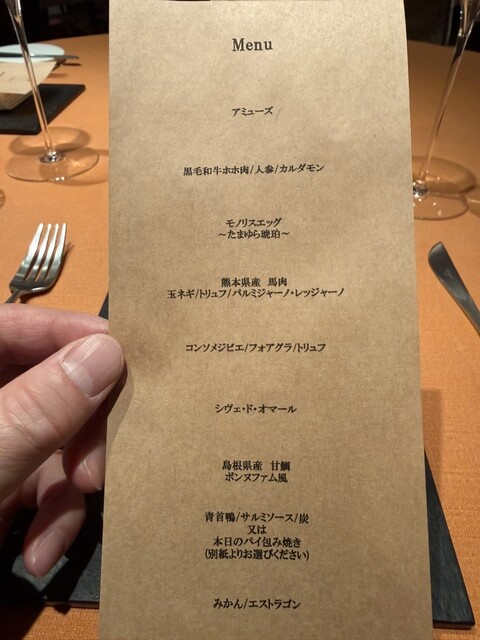 Menu
アミューズ
黒毛和牛ホホ肉/人参/カルダモン
モノリスエッグ
～たまゆら琥珀～
熊本県産 馬肉
玉ネギ/トリュフ/パルミジャーノ・レッジャーノ
コンソメジビエ/フォアグラ/トリュフ
シヴェ・ド・オマール
島根県産 甘鯛
ボンヌファム風
青首鴨/サルミソース/炭
又は
本日のパイ包み焼き
(別紙よりお選びください)
みかん/エストラゴン